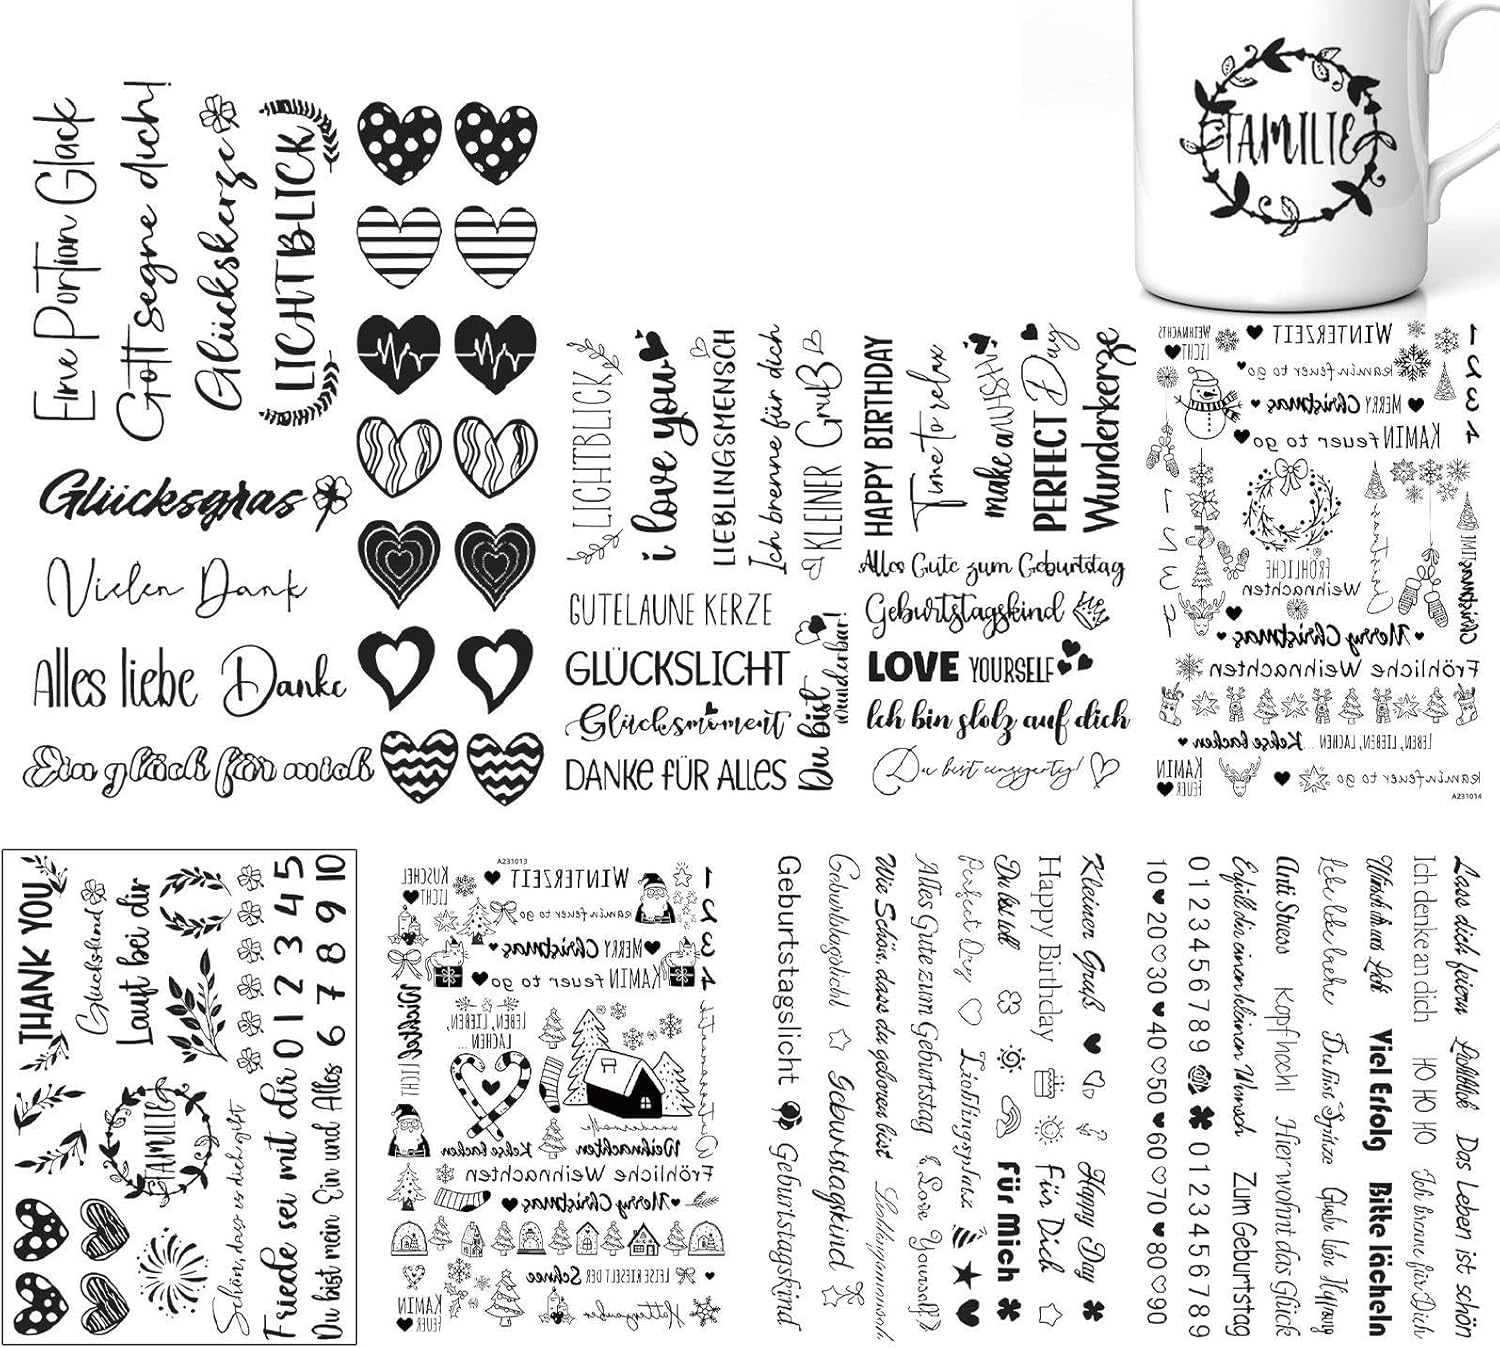 FAMILIE
Eine Portion Glück
Gott segne dich!
Glückskerze
LICHTBLICK
Glücksgras
Vielen Dank
Alles liebe Danke
Ein glück für mich
LICHTBLICK
i love you
LIEBLINGSMENSCH
Ich brenne für dich
KLEINER Gruß
GUTELAUNE KERZE
GLÜCKSLICHT
Glücksmoment
DANKE FÜR ALLES
Du bist
wunderbar!
HAPPY BIRTHDAY
Time to relax
make a WISH
PERFECT Day
Wunderkerze
Alles Gute zum Geburtstag
Geburtstagskind
LOVE YOURSELF
Ich bin stolz auf dich
Du bist einzigartig!
WEIHNACHTS
LICHT
WINTERZEIT
kaminfeuer to go
MERRY Christmas
KAMIN feuer to go
1
2
3
4
1 2 3 4
FRÖHLICHE
Weihnachten
Christmas TIME
Merry Christmas
Fröhliche Weihnachten
LEBEN, LIEBEN, LACHEN... Kekse backen
KAMIN
FEUER
kaminfeuer to go
A231014
THANK YOU
Glückskind
Lauf bei dir
FAMILIE
Schön, dass es dich gibt
Friede sei mit dir 0 1 2 3 4 5
Du bist mein Ein und Alles 6 7 8 9 10
A231013
KUSCHEL
LICHT
WINTERZEIT
kaminfeuer to go
MERRY Christmas
KAMIN feuer to go
1
2
3
4
Wichtel LICHT
LEBEN, LIEBEN,
LACHEN...
Weihnachten
Kekse backen
Fröhliche Weihnachten
Merry Christmas
LEISE RIESELT DER Schnee
KAMIN
FEUER
Hüttenzauber
Geburtstagslicht Geburtstagskind
Geburtstagslicht Geburtstagskind
Wie Schön, dass du geboren bist
Lieblingsmensch
Alles Gute zum Geburtstag Love Yourself
Perfect Day Lieblingsplatz
Du bist toll Für Mich
Happy Birthday Für Dich
Kleiner Gruß Happy Day
10 20 30 40 50 60 70 80 90
0 1 2 3 4 5 6 7 8 9 0 1 2 3 4 5 6 7 8 9
Erfüll dir einen kleinen Wunsch Zum Geburtstag
Anti Stress Kopf hoch! Hier wohnt das Glück
Ich liebe dich Du bist Spitze Glaube Liebe Hoffnung
Wünsch dir was Licht Viel Erfolg Bitte lächeln
Ich denke an dich HO HO HO Ich brenne für Dich
Lass dich feiern Lichtblick Das Leben ist schön